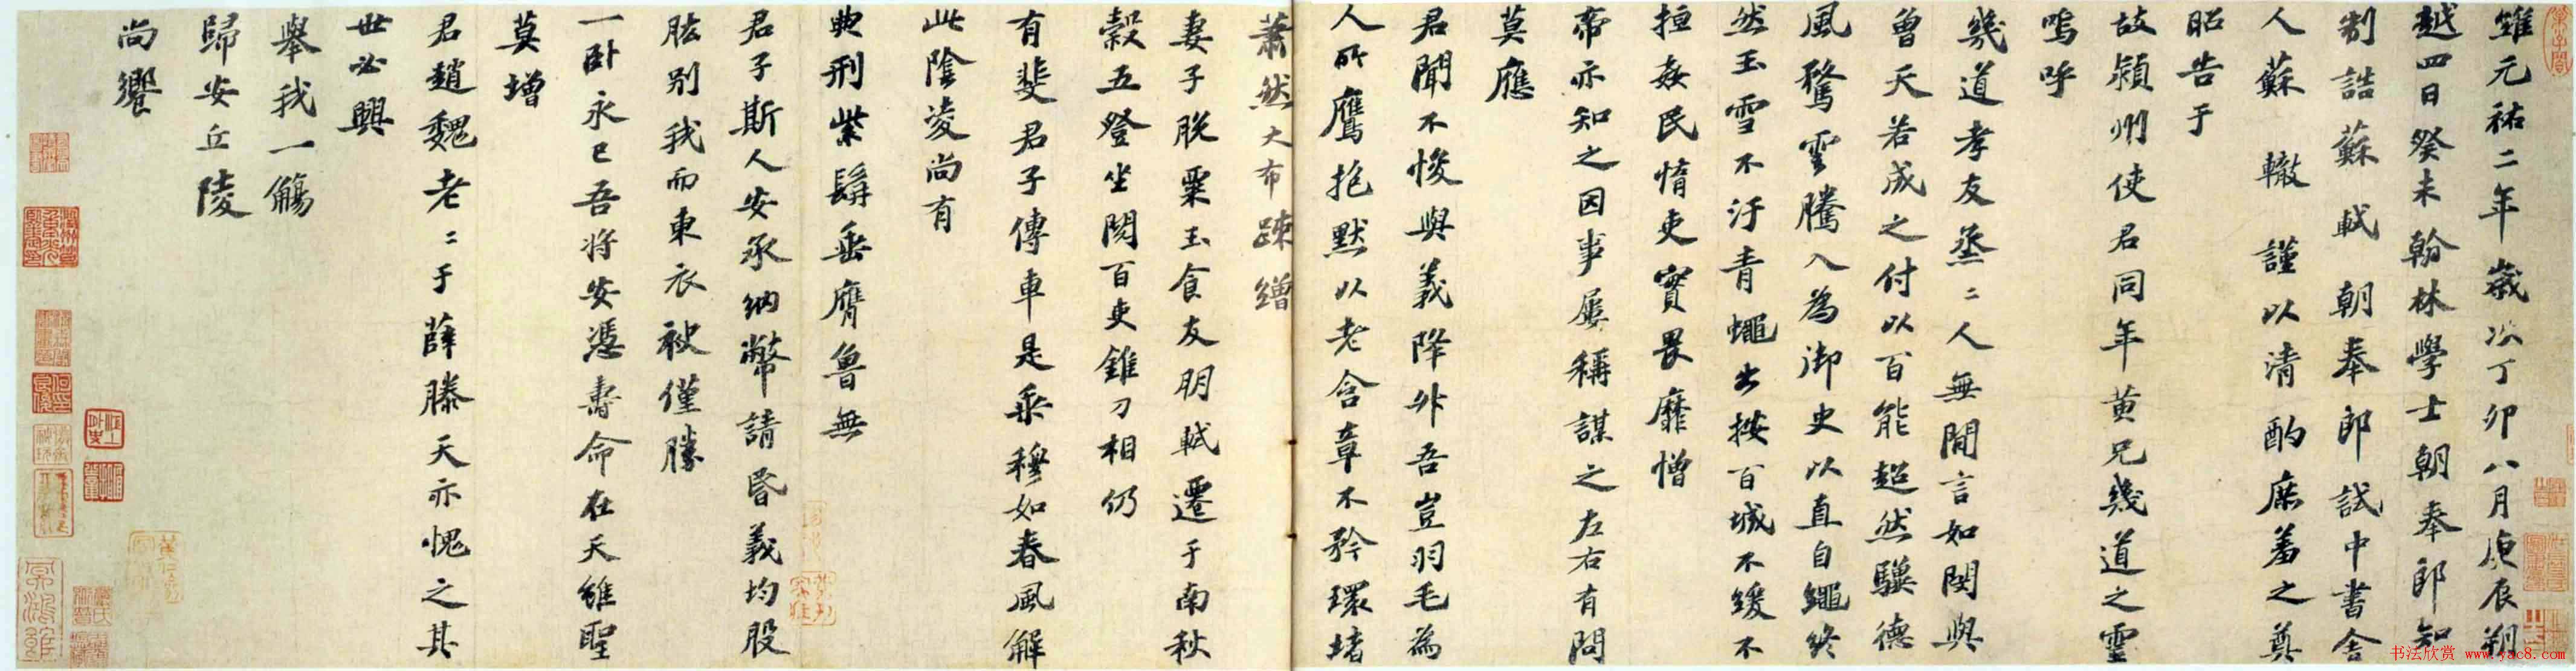 維元祐二年歲次丁卯八月庚辰朔
越四日癸未翰林學士朝奉郎知
制誥蘇軾朝奉郎試中書舍
人蘇轍謹以清酌庶羞之奠
昭告于
故潁州使君同年黄兄幾道之靈
嗚呼
幾道孝友烝〻人無閒言如閔與
曾天若成之付以百能超然驥德
風騖雲騰入為御史以直自繩終
然玉雪不汙青蠅出按百城不緩不
揰姦民惰吏實畏靡憎
帝亦知之因事屢稱謀之左右有問
莫應
君聞不悛與義降升吾豈羽毛為
人所鷹抱默以老含章不矜環堵
蕭然大布疎繒
妻子脱粟玉食友朋軾遷于南秋
穀五登坐閱百吏錐刀相仍
有斐君子傳車是乘穆如春風解
此陰凌尚有
典刑紫髯垂膺魯無
君子斯人安承納幣請昏義均股
肱别我而東衣袂僅勝
一卧永已吾将安憑壽命在天雖聖
莫增
君趙魏老〻于薛滕天亦愧之其
世必興
舉我一觴
歸安丘陵
尚饗
书法欣赏 www.yac8.com